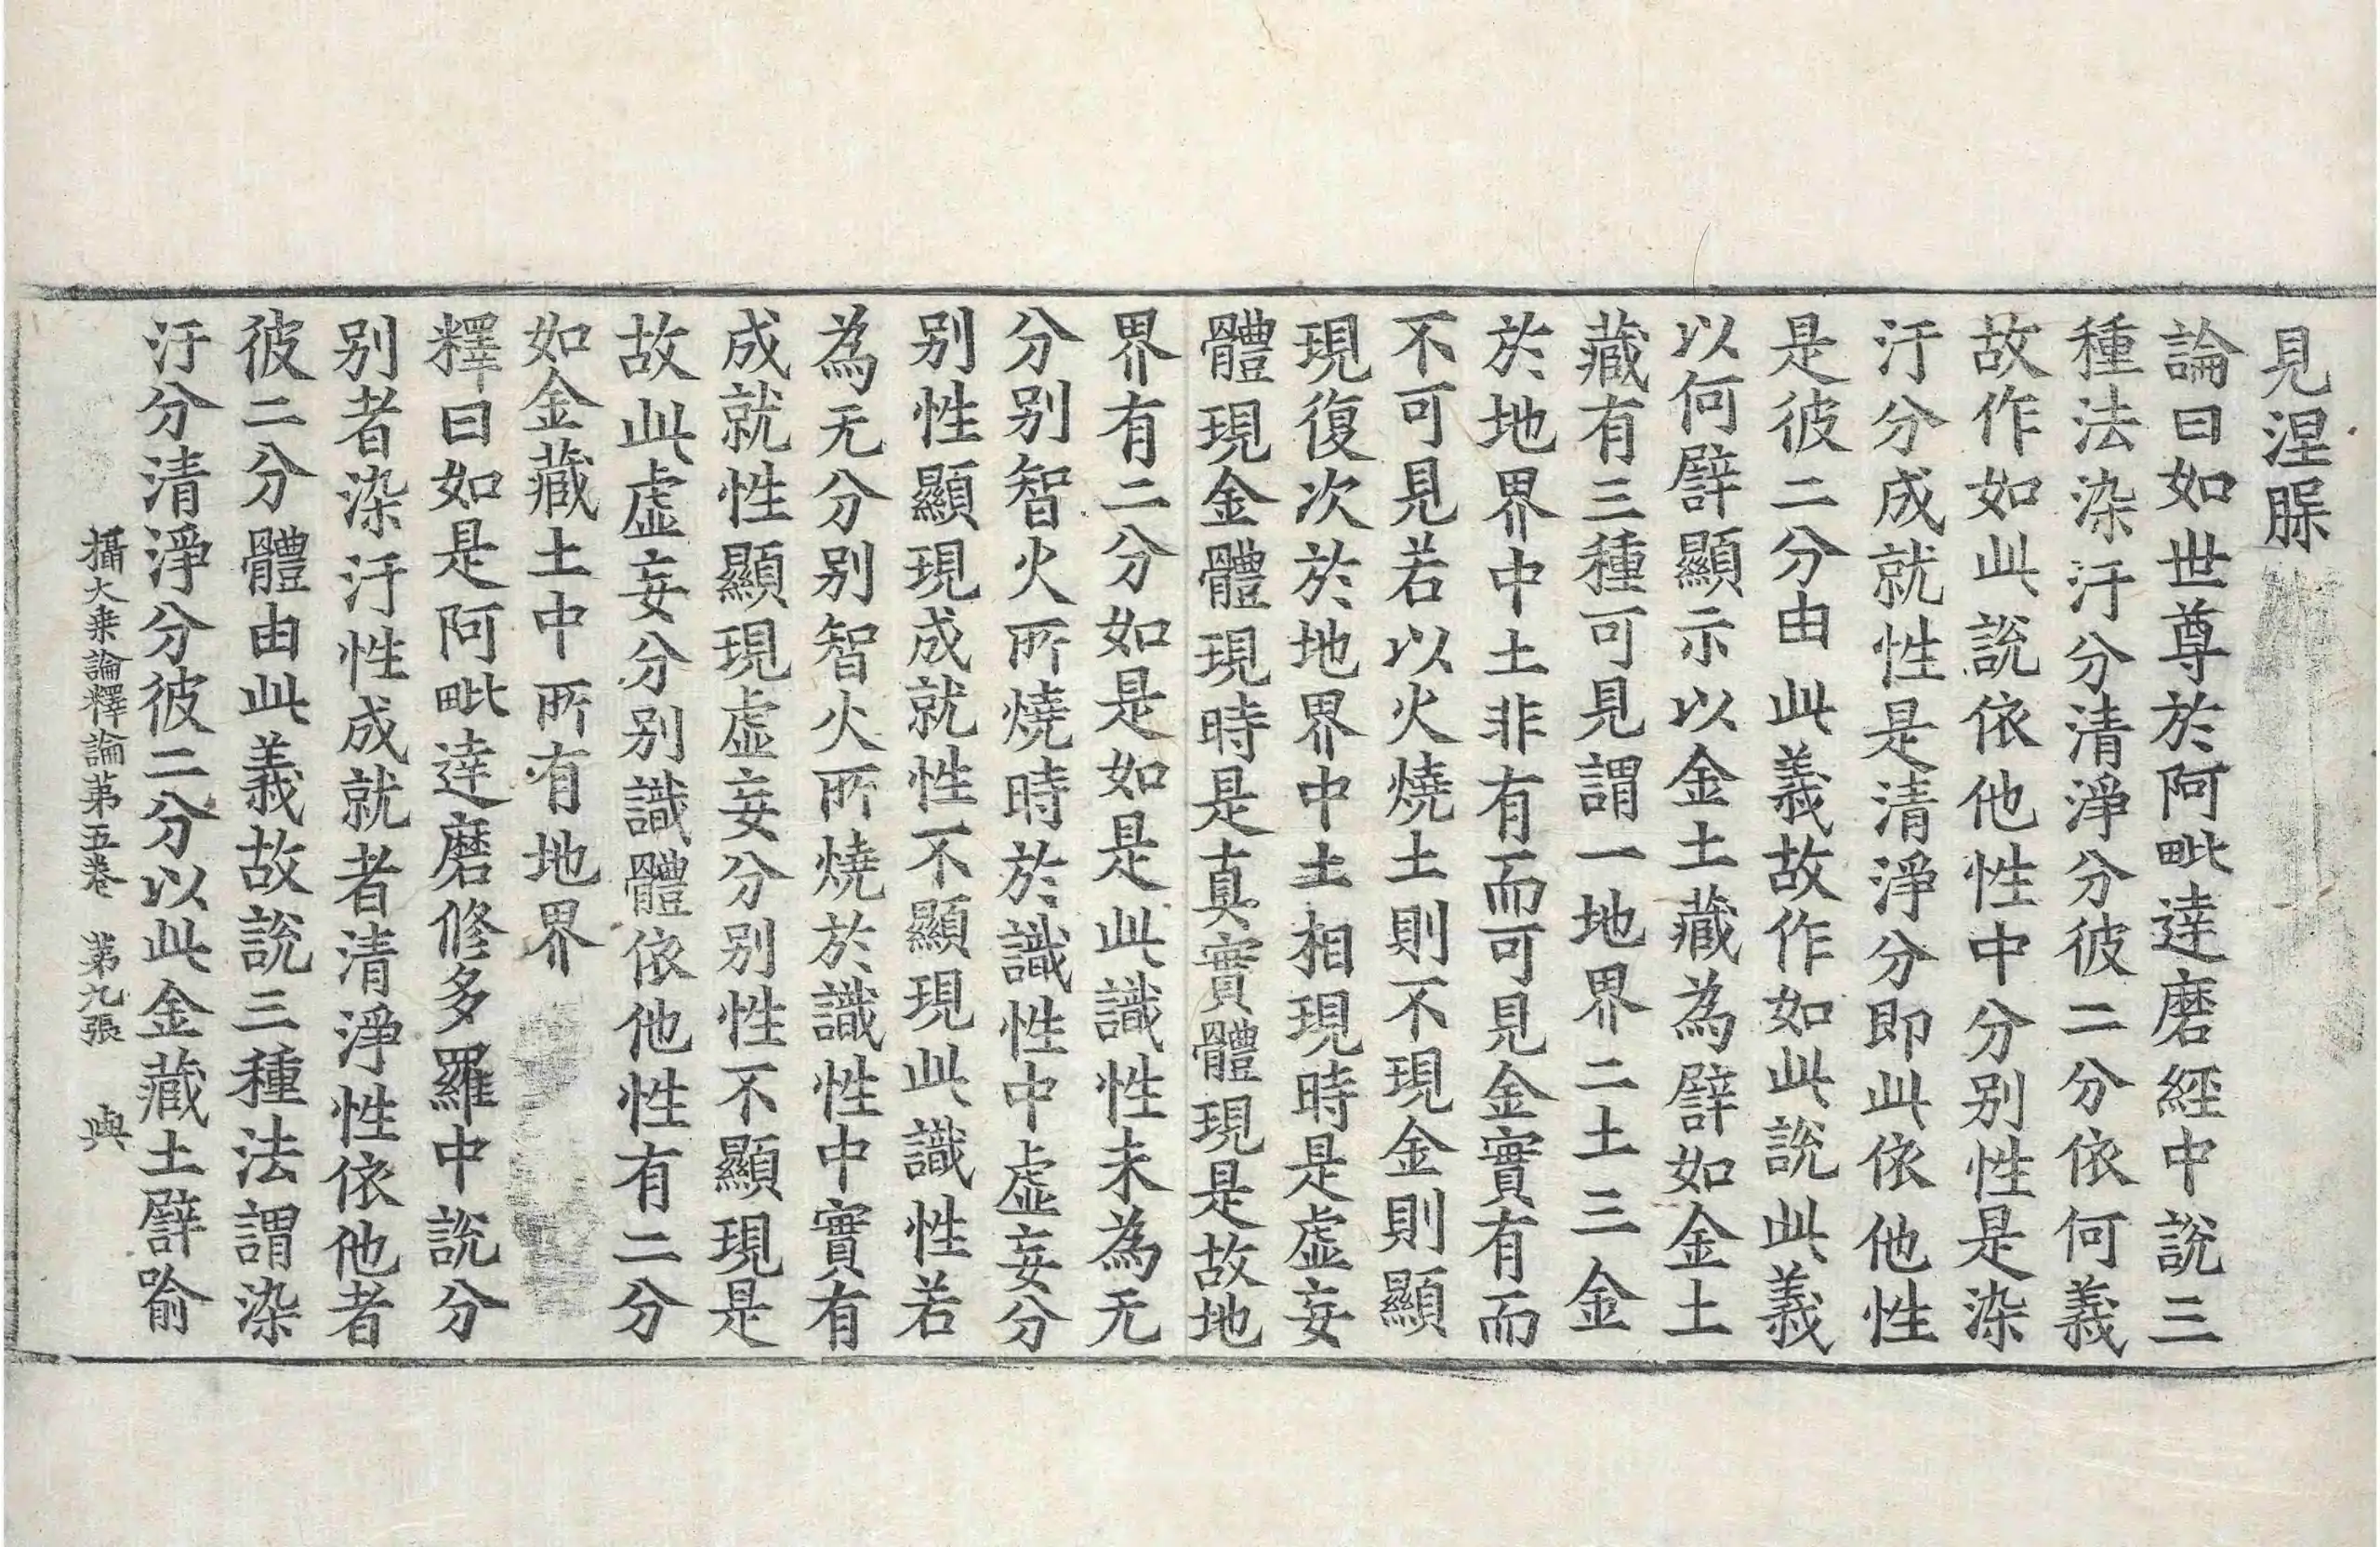 見涅脲
論曰如世尊於阿毗達磨經中說三
種法染汙分清淨分彼二分依何義
故作如此說依他性中分别性是染
汙分成就性是清淨分即此依他性
是彼二分由此義故作如此說此義
以何譬顯示以金土藏為譬如金土
藏有三種可見謂一地界二土三金
於地界中土非有而可見金實有而
不可見若以火燒土則不現金則顯
現復次於地界中土相現時是虛妄
體現金體現時是真實體現是故地
界有二分如是如是此識性未為无
分别智火所燒時於識性中虛妄分
别性顯現成就性不顯現此識性若
為无分别智火所燒於識性中實有
成就性顯現虛妄分别性不顯現是
故此虛妄分别識體依他性有二分
如金藏土中所有地界
釋曰如是阿毗達磨修多羅中說分
别者染汙性成就者清淨性依他者
彼二分體由此義故說三種法謂染
汙分清淨分彼二分以此金藏土譬喻
攝大乗論釋論第五卷　第九張　與